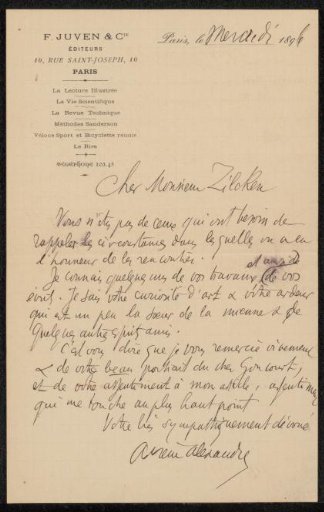 F. JUVEN & Cie
ÉDITEURS
10, RUE SAINT-JOSEPH, 10
PARIS
La Lecture Illustrée
La Vie Scientifique
La Revue Technique
Méthodes Sanderson
Véloce Sport et Bicyclette réunis
Le Rire
Paris, le Mercredi 1896
Cher Monsieur Zilcken
Vous n'êtes pas de ceux qui ont besoin de
rappeler les circonstances dans laquelle on a eu
l'honneur de les rencontrer.
Je connais quelques uns de vos travaux et aussi de vos
écrits. Je sais votre curiosité d'art & votre ardeur
qui est un peu la sœur de la mienne & de
quelques autres amis.
C'est vous dire que je vous remercie vivement
& de votre beau portrait du cher Goncourt,
et de votre assentiment à mon
qui me touche au plus haut point
Votre bien sympathiquement dévoué
Arsène Alexandre